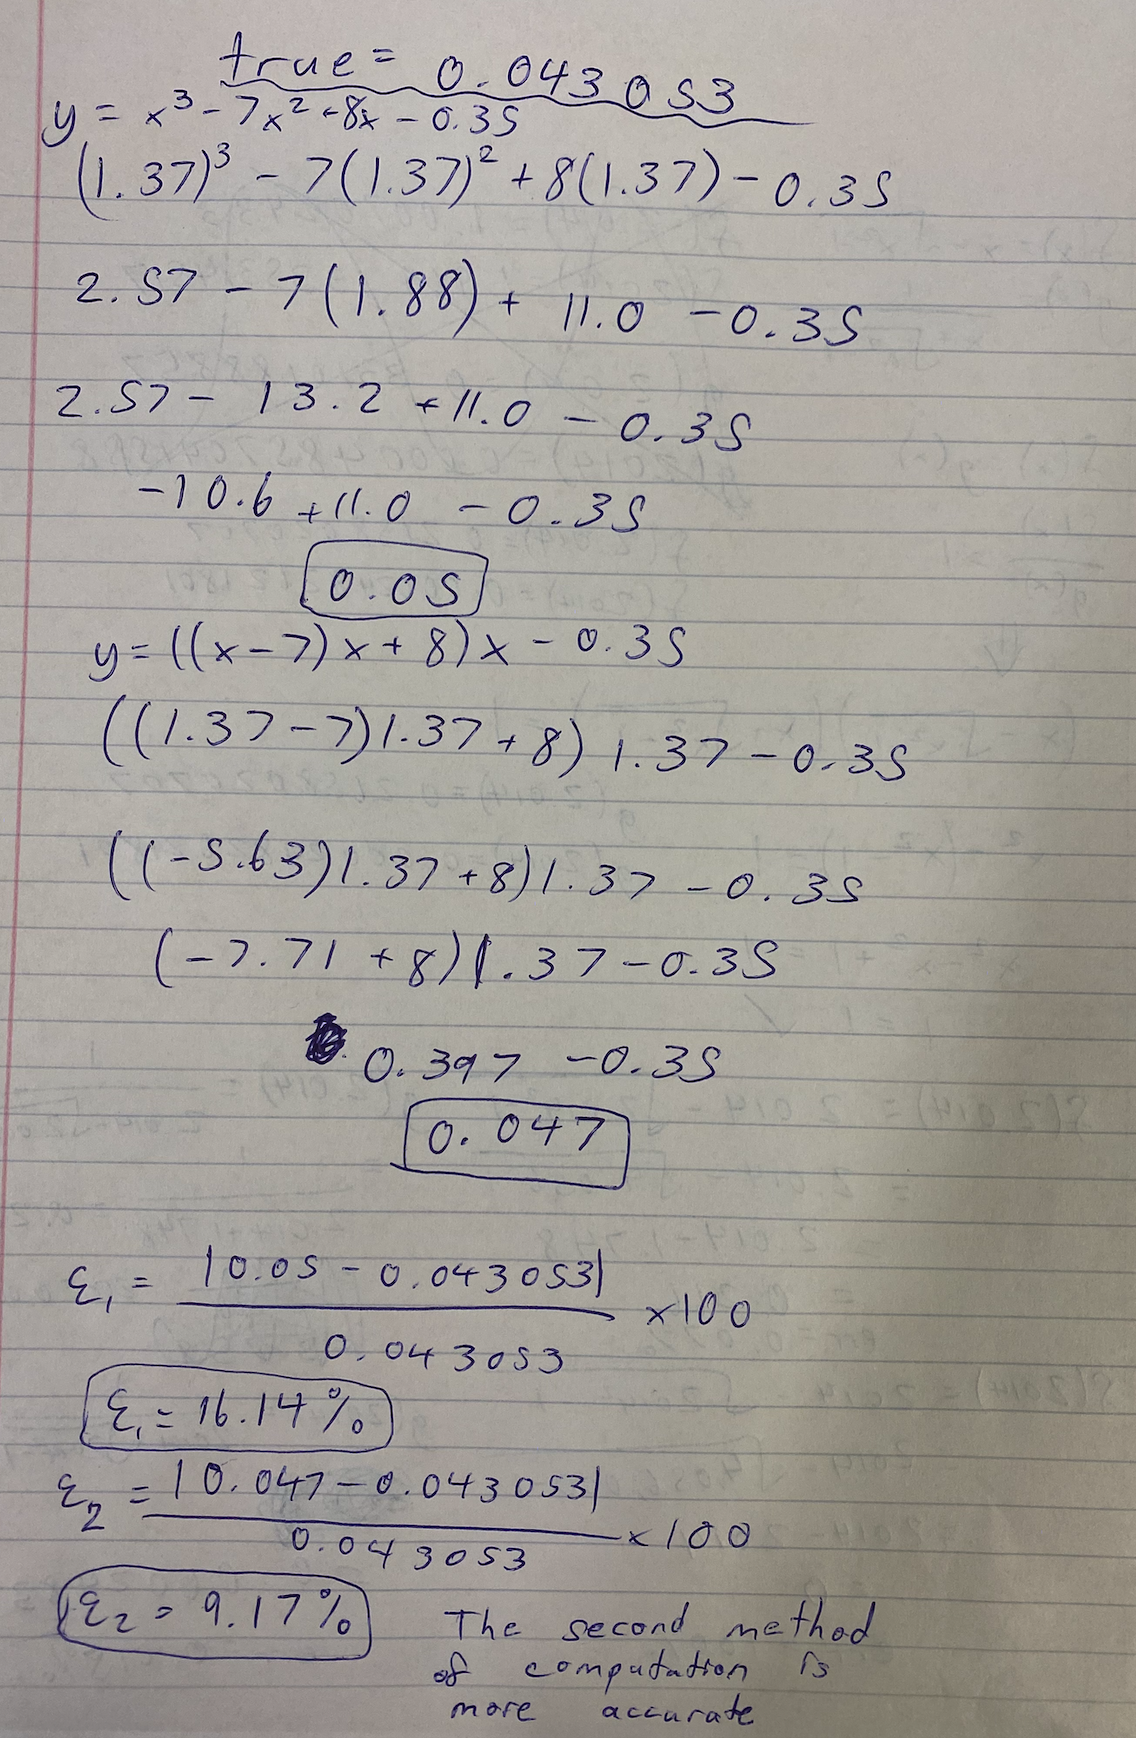 true = 0.043053
y = x³ - 7x² + 8x - 0.35
(1.37)³ - 7(1.37)² + 8(1.37) - 0.35
2.57 - 7(1.88) + 11.0 - 0.35
2.57 - 13.2 + 11.0 - 0.35
-10.6 + 11.0 - 0.35
0.05
y = ((x - 7)x + 8)x - 0.35
((1.37 - 7)1.37 + 8) 1.37 - 0.35
((-5.63)1.37 + 8)1.37 - 0.35
(-7.71 + 8)1.37 - 0.35
0.397 - 0.35
0.047
ε₁ = |0.05 - 0.043053| / 0.043053 × 100
ε₁ = 16.14%
ε₂ = |0.047 - 0.043053| / 0.043053 × 100
ε₂ = 9.17%
The second method
of computation is
more accurate